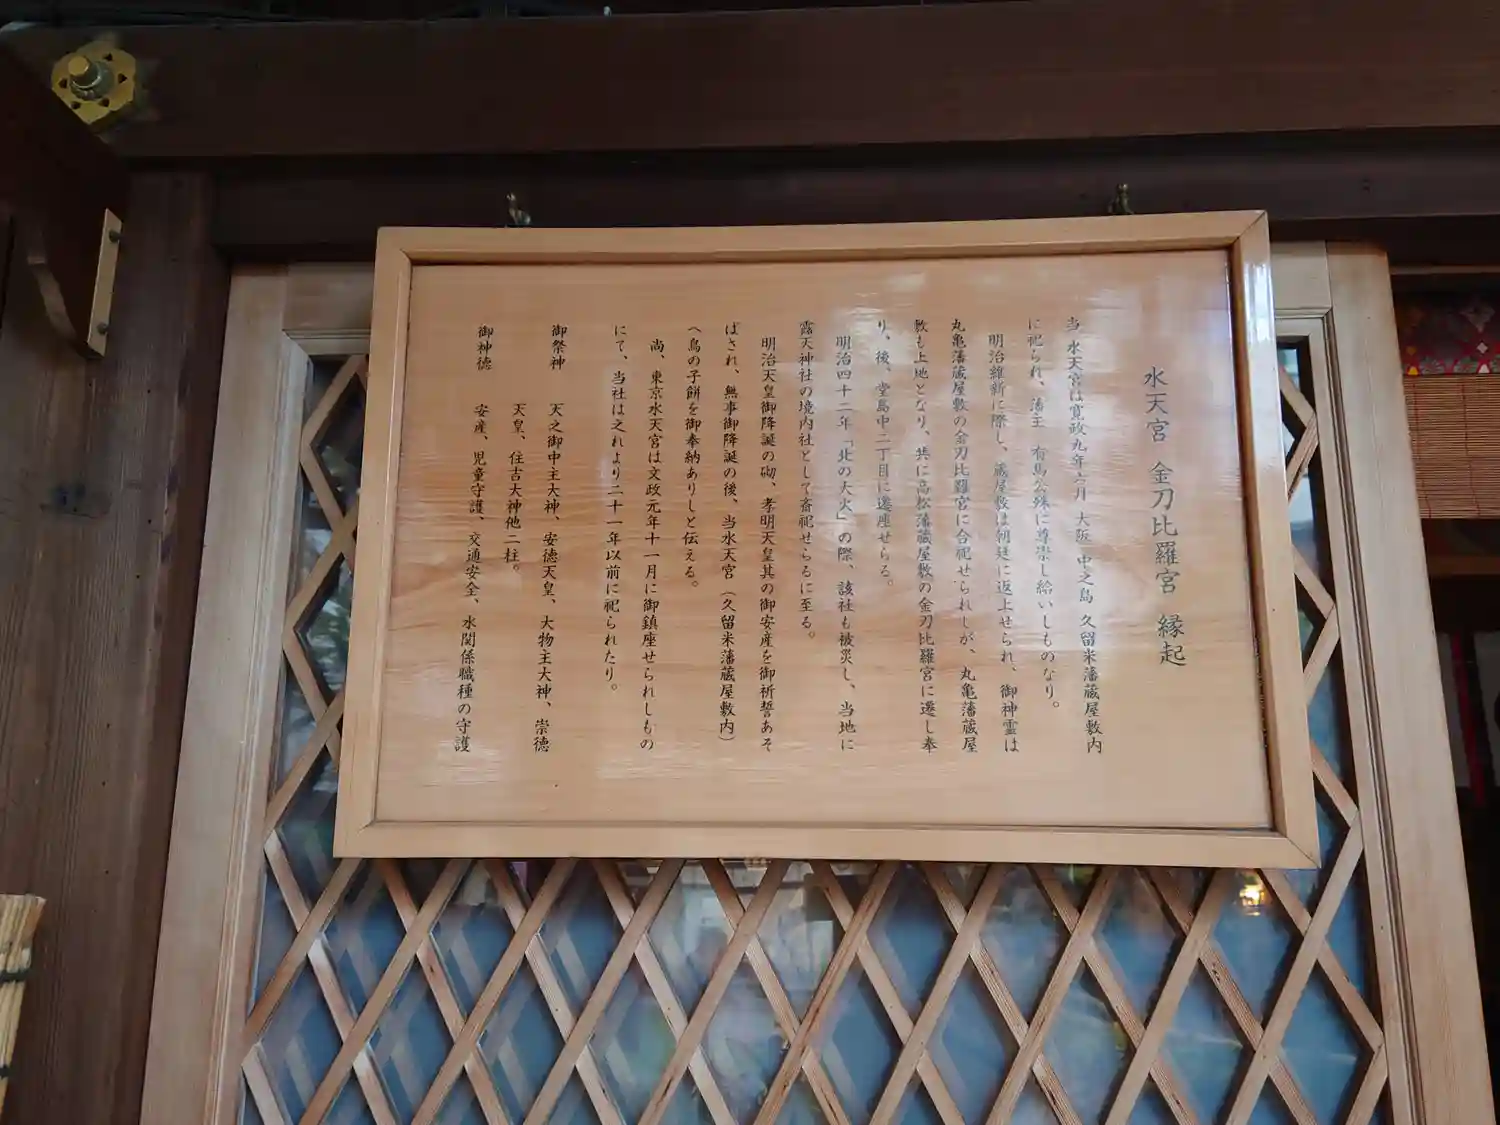 水天宮　金刀比羅宮　縁起
当、水天宮は寛政九年六月 大阪 中之島 久留米藩蔵屋敷内
に祀られ、藩主　有馬公殊に尊崇し給いしものなり。
明治維新に際し、蔵屋敷は朝廷に返上せられ、御神霊は
丸亀藩蔵屋敷の金刀比羅宮に合祀せられしが、丸亀藩蔵屋
敷も上地となり、共に高松藩蔵屋敷の金刀比羅宮に遷し奉
り、後、堂島中二丁目に遷座せらる。
明治四十二年「北の大火」の際、該社も被災し、当地に
露天神社の境内社として斎祀せらるに至る。
明治天皇御降誕の砌、孝明天皇其の御安産を御祈誓あそ
ばされ、無事御降誕の後、当水天宮（久留米藩蔵屋敷内）
へ鳥の子餅を御奉納ありしと伝える。
尚、東京水天宮は文政元年十一月に御鎮座せられしもの
にて、当社は之れより二十一年以前に祀られたり。
御祭神　天之御中主大神、安徳天皇、大物主大神、崇徳
天皇、住吉大神他二柱。
御神徳　安産、児童守護、交通安全、水関係職種の守護